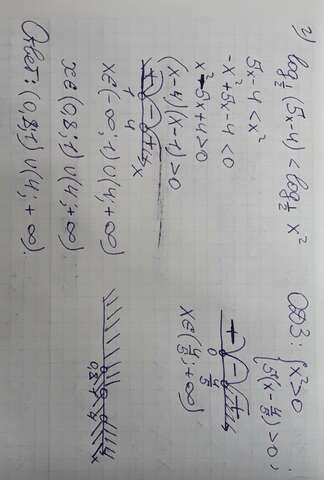 г) log_{1/2} (5x-4) < log_{1/2} x²
5x-4 < x²
-x²+5x-4 < 0
x²-5x+4 > 0
(x-4)(x-1) > 0
+ - +
1 4 x
x∈(-∞;1)∪(4;+∞)
x∈(0,8;1)∪(4;+∞)
Ответ: (0,8;1)∪(4;+∞).
ОДЗ: { x² > 0
5(x-4/5) > 0;
+ - +
0 4/5
x∈(4/5;+∞)
0,8 1 4 x